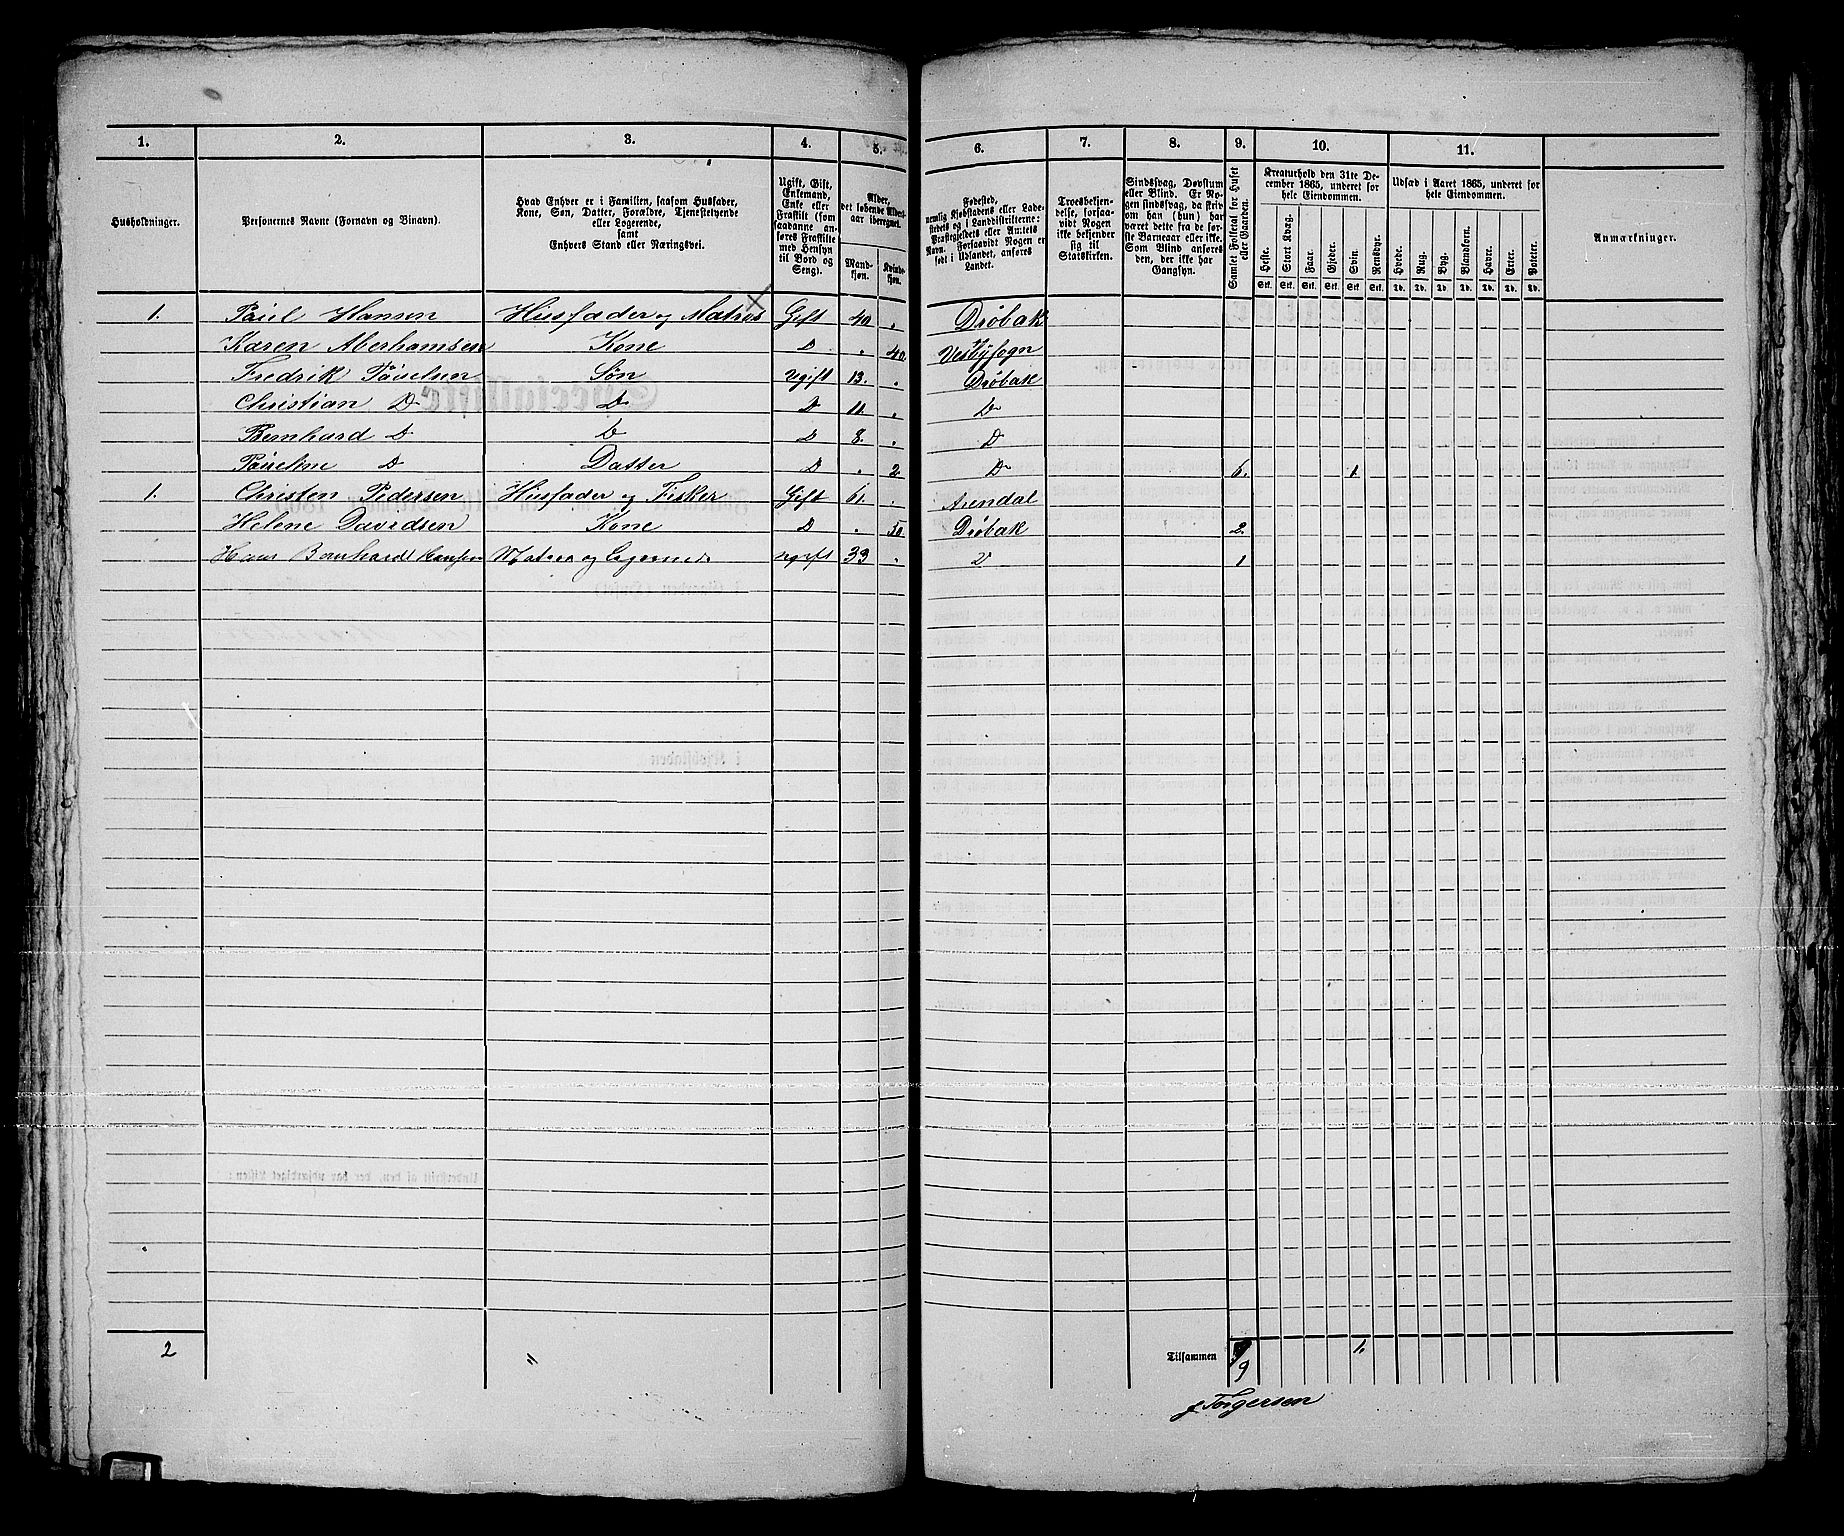 1. 2. 3. 4. 5. 6. 7. 8. 9. 10. 11.
Husholdninger.
Personernes Navne (Fornavn og Binavn).
Hvad Enhver er i Familien, saasom Husfader,
Kone, Søn, Datter, Forældre, Tjenestetyende
eller Logerende,
samt
Enhvers Stand eller Næringsvei.
Ugift, Gift,
Enkemand,
Enke eller
Fraskilt (som
saadanne an-
føres Fraskilte
med Hensyn
til Bord og
Seng).
Alder,
det løbende Alders-
aar iberegnet.
Mand-
kjøn.
Kvinde-
kjøn.
Fødested,
nemlig Kjøbstadens eller Lade-
stedets og i Landdistrikterne:
Præstegjeldets eller Amtets
Navn. Forsaavidt Nogen er
født i Udlandet, anføres
Landet.
Troesbekjen-
delse, forsaa-
vidt Nogen
ikke bekjender
sig til
Statskirken.
Sindssvag, Døvstum
eller Blind. Er No-
gen sindssvag, da skriv
om han (hun) har
været dette fra de før-
ste Barneaar eller ikke.
Som Blind anføres
den, der ikke har
Gangsyn.
Samlet Folketal for Huset
eller Gaarden.
Kreaturhold den 31te De-
cember 1865, underet for
hele Eiendommen.
Heste. Stort Kvæg. Faar. Gjeder. Svin. Rensdyr.
Stk. Stk. Stk. Stk. Stk. Stk.
Udsæd i Aaret 1865, underet for
hele Eiendommen.
Hvede. Rug. Byg. Blandkorn. Havre. Erter. Poteter.
Td. Td. Td. Td. Td. Td. Td.
Anmærkninger.
1. Paul Hansen Husfader og Matros Gift 40 " Drøbak
Karen Aberhamsen Kone D " 40 Vestby sogn
Fredrik Paulsen Søn Ugift 13. " Drøbak
Christian D D D 11. " D
Bernhard D D D 8. " D
Pauline D Datter D " 2 D 6. 1.
1. Christen Pedersen Husfader og Fisker Gift 61. " Arendal
Helene Davidsen Kone D " 50 Drøbak 2.
Hans Bernhard Hansen Matros og Logerende ugift 33 " D 1
2 " Tilsammen 9 1.
J Torgersen